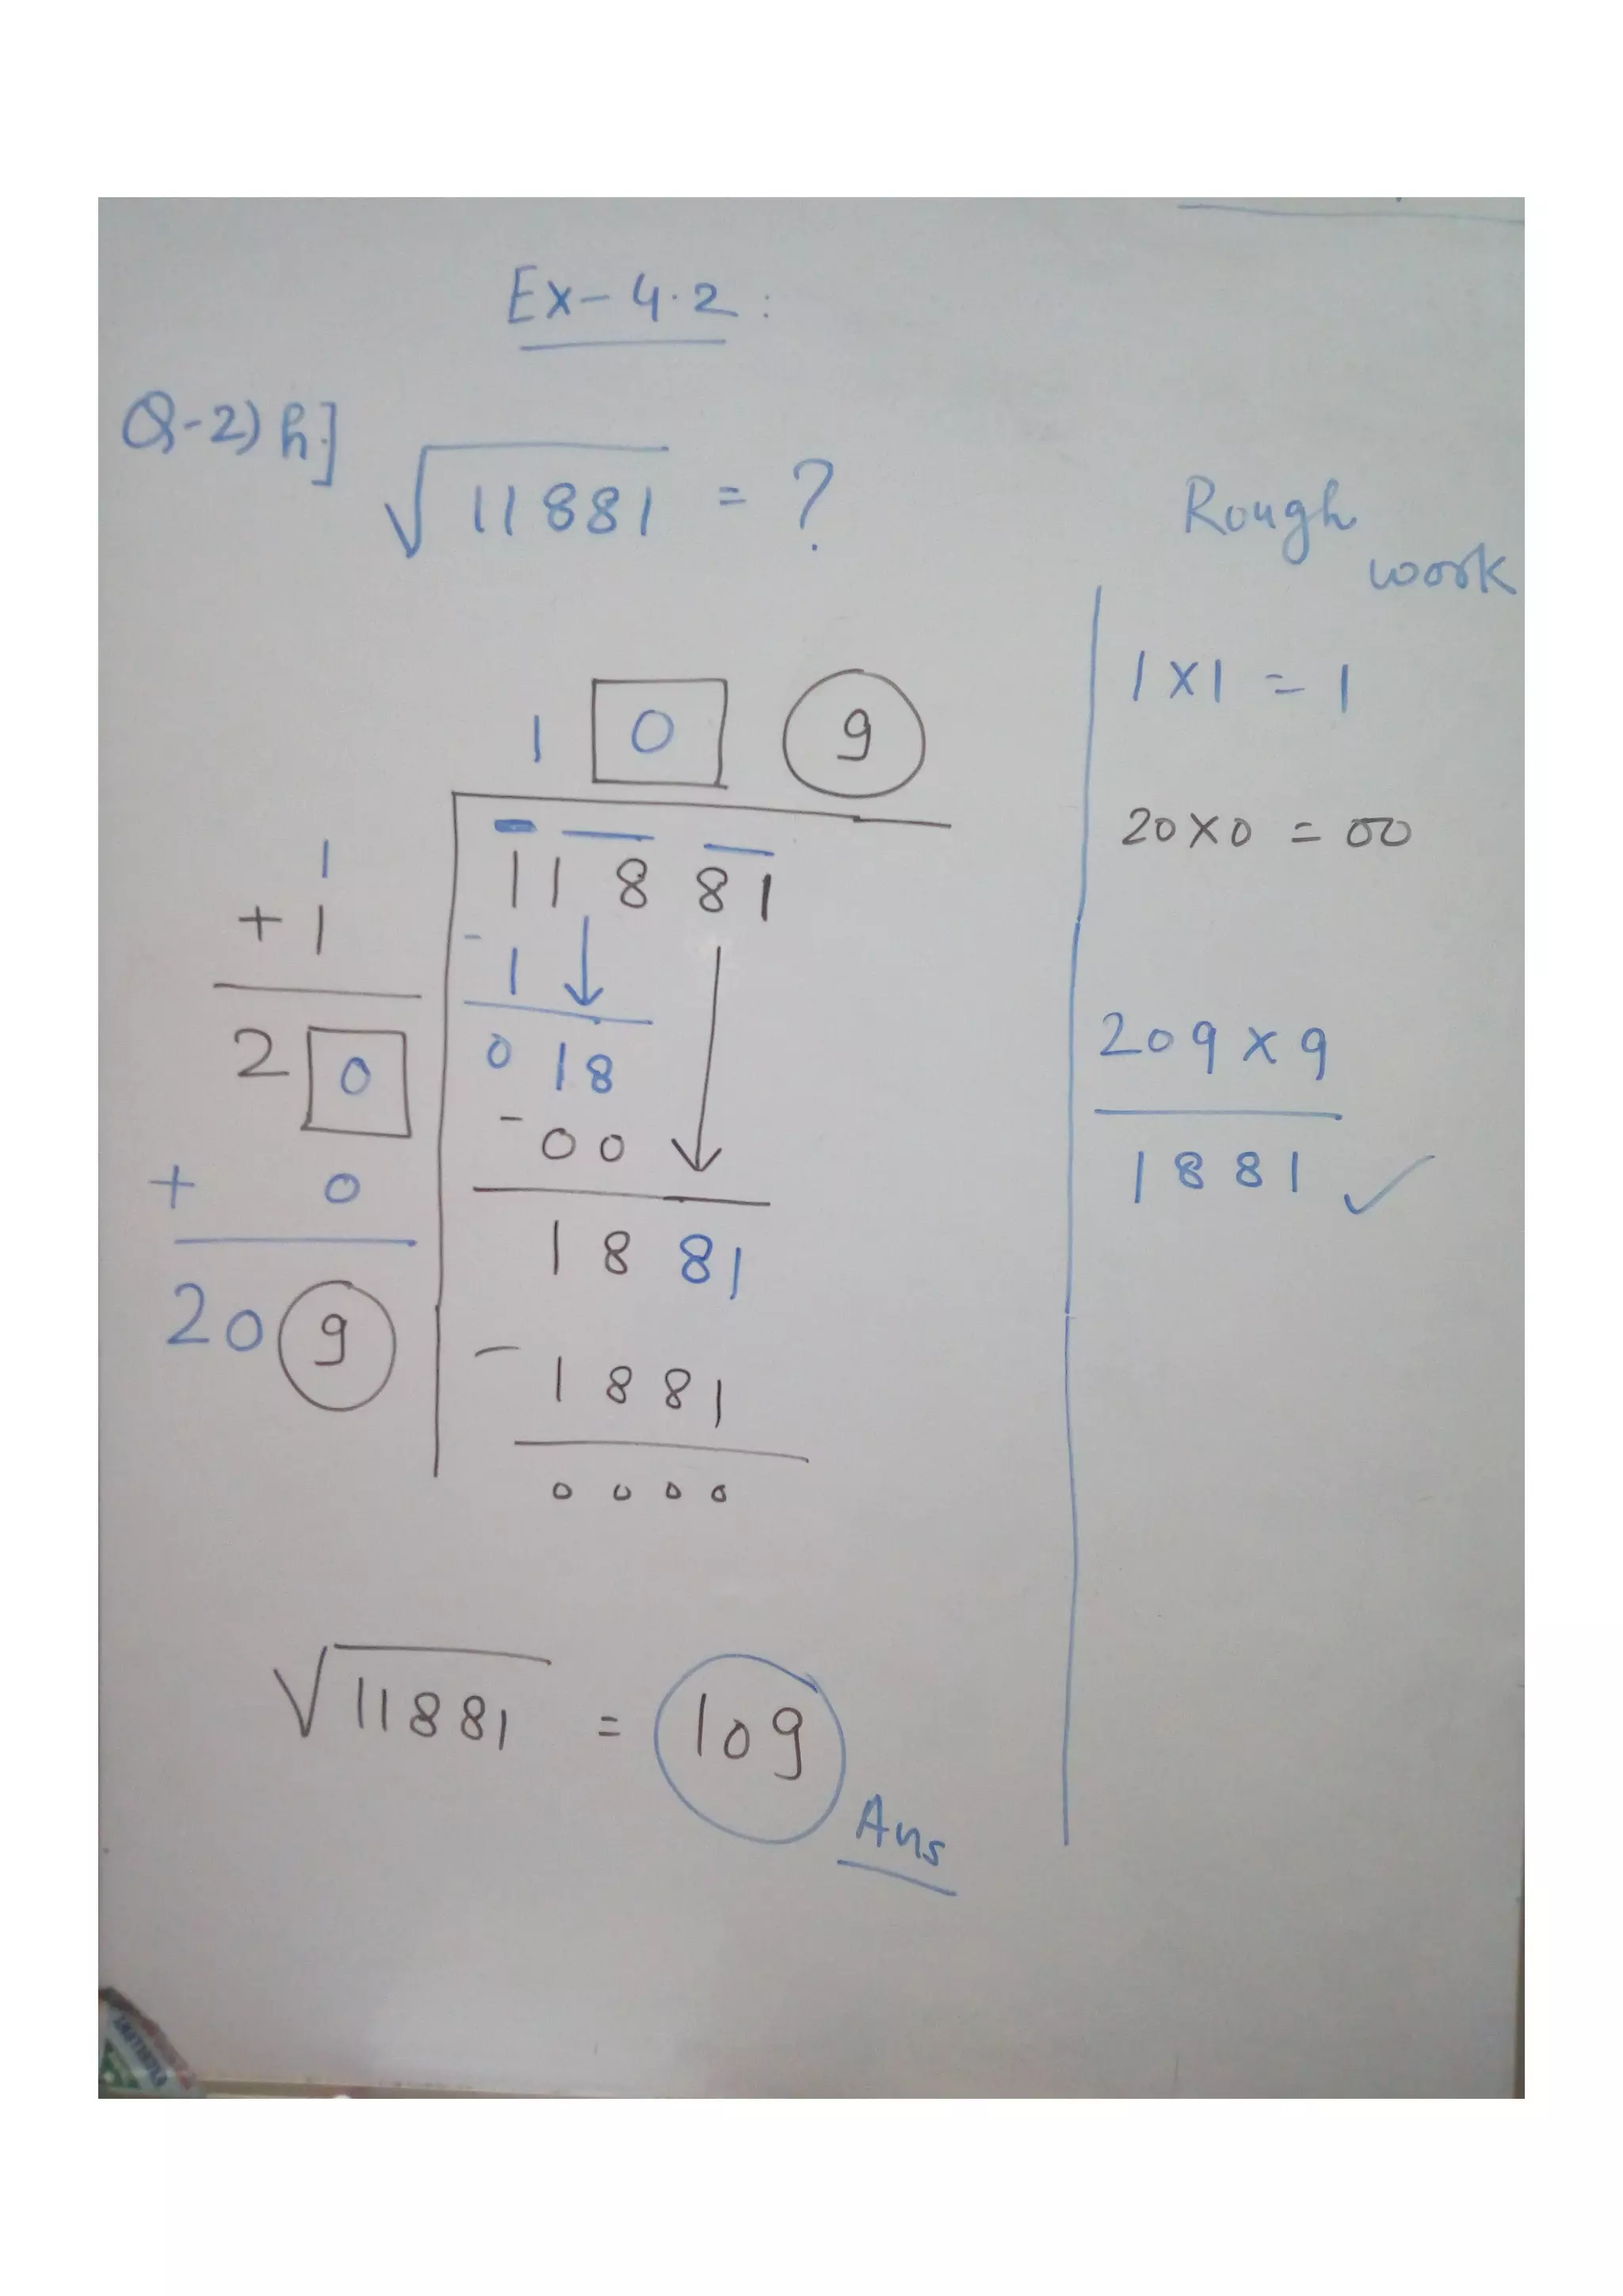 Ex-4.2:
Q-2) h.]
√11881 = ?
Rough
work
1 0 9
1
+ 1
2 0
+ 0
20 9
1 18 81
- 1
0 18
- 00
18 81
- 1881
0 0 0 0
1 x 1 = 1
20 x 0 = 00
209 x 9
1881 ✓
√11881 = 109
Ans